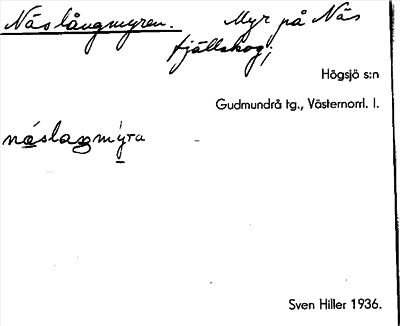 Näslångmyren. Myr på Näs
fjällskog;
Högsjö s:n
Gudmundrå tg., Västernorrl. l.
nä́slaŋmy̱ra
Sven Hiller 1936.